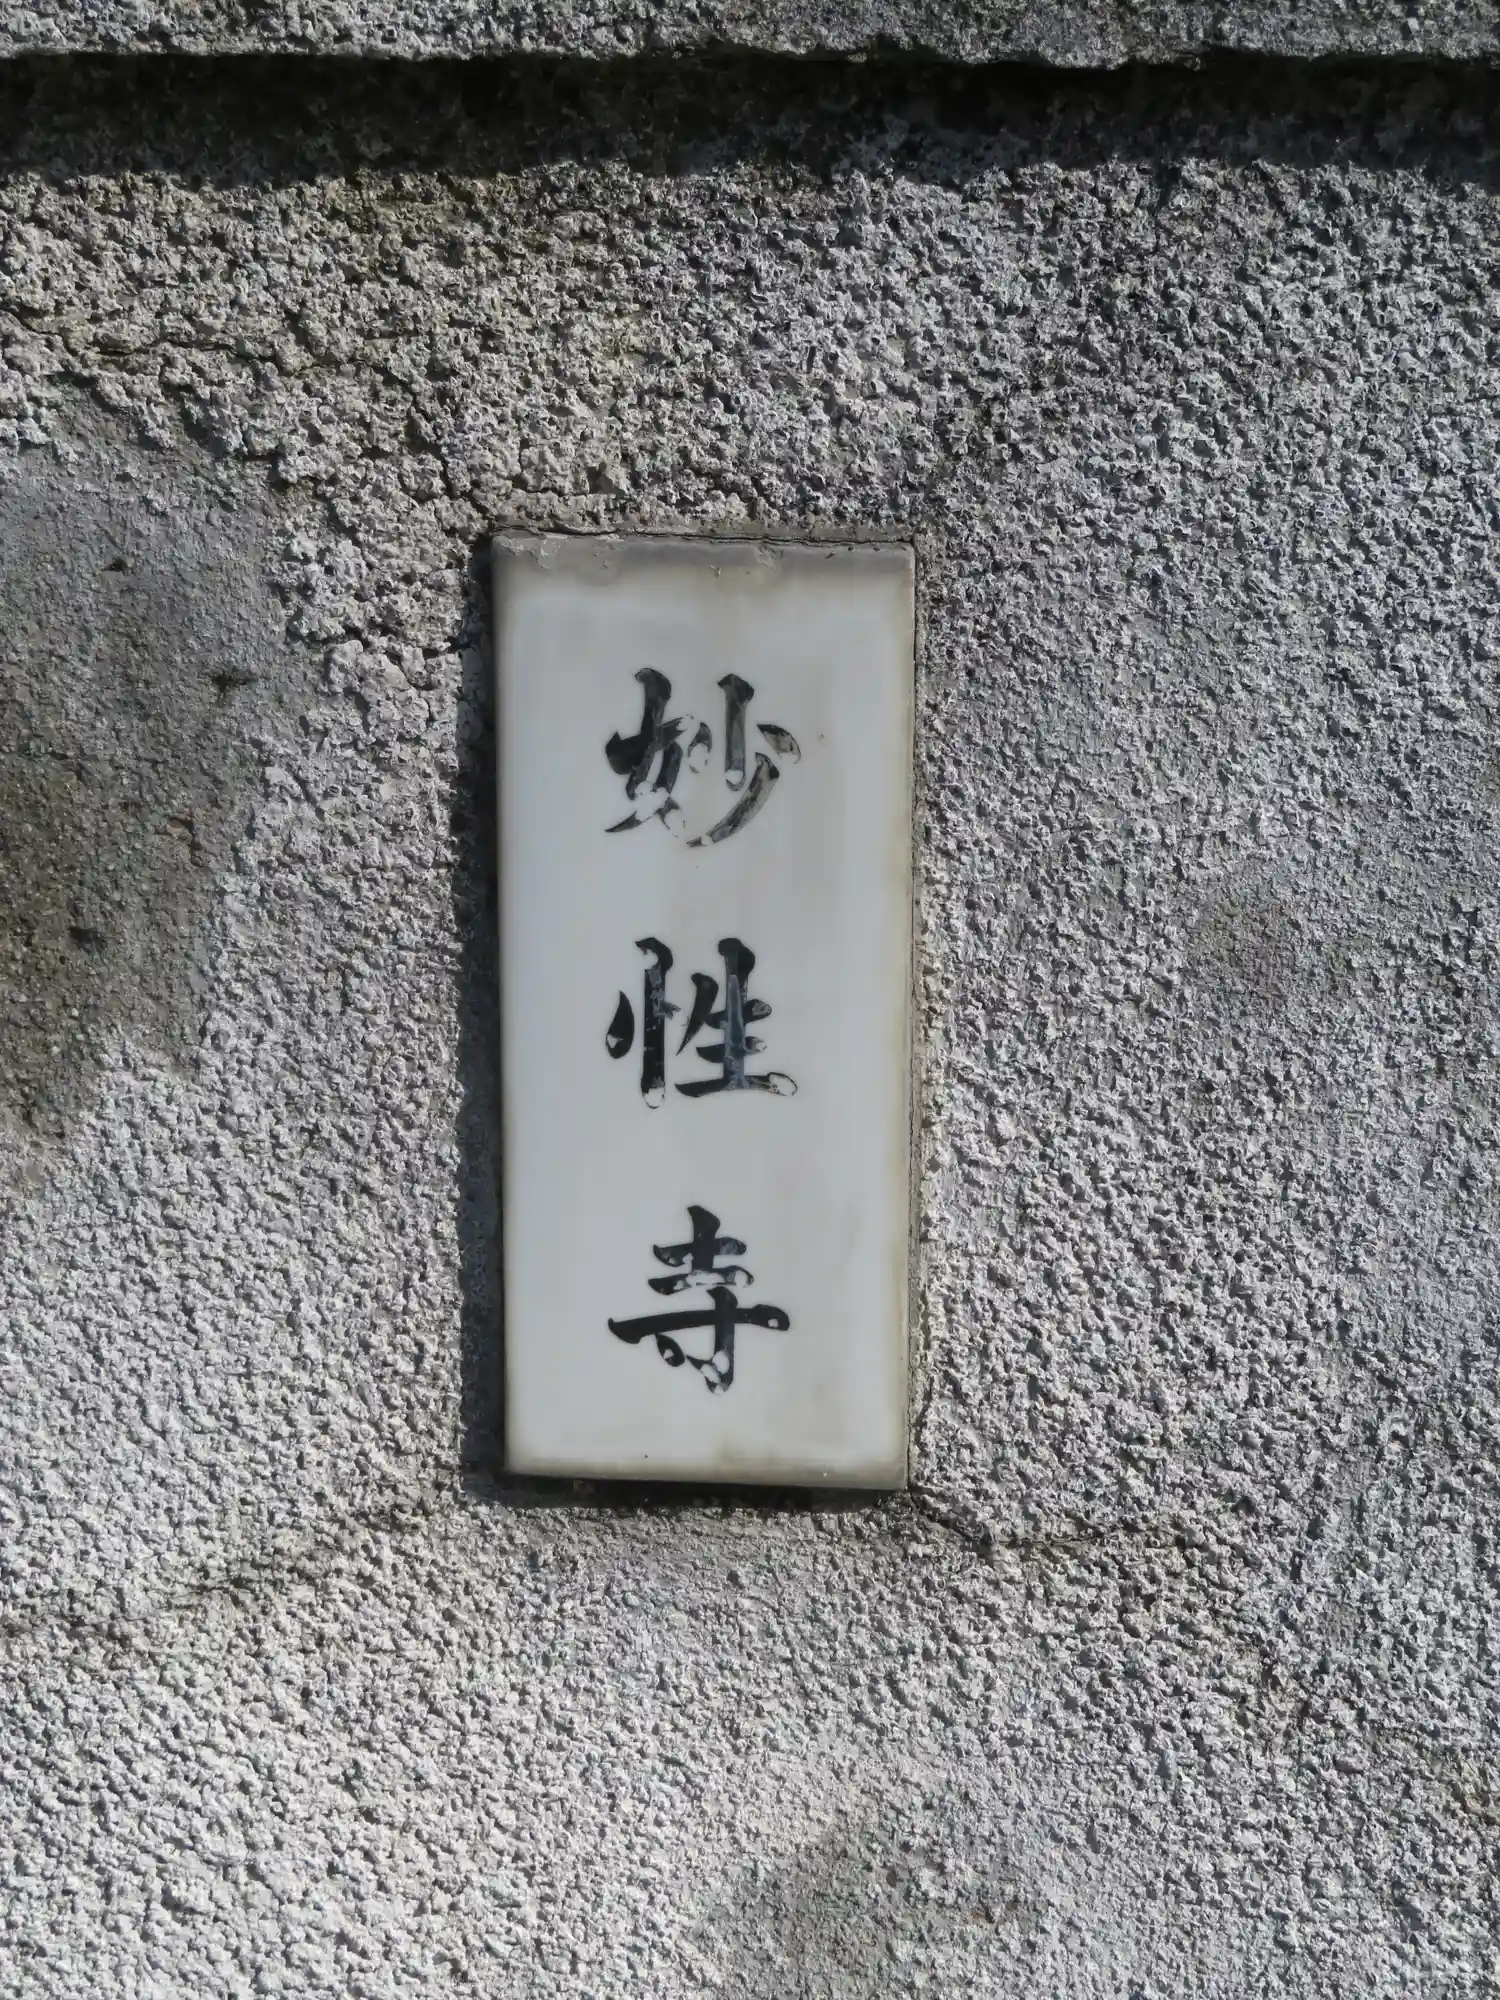 妙性寺